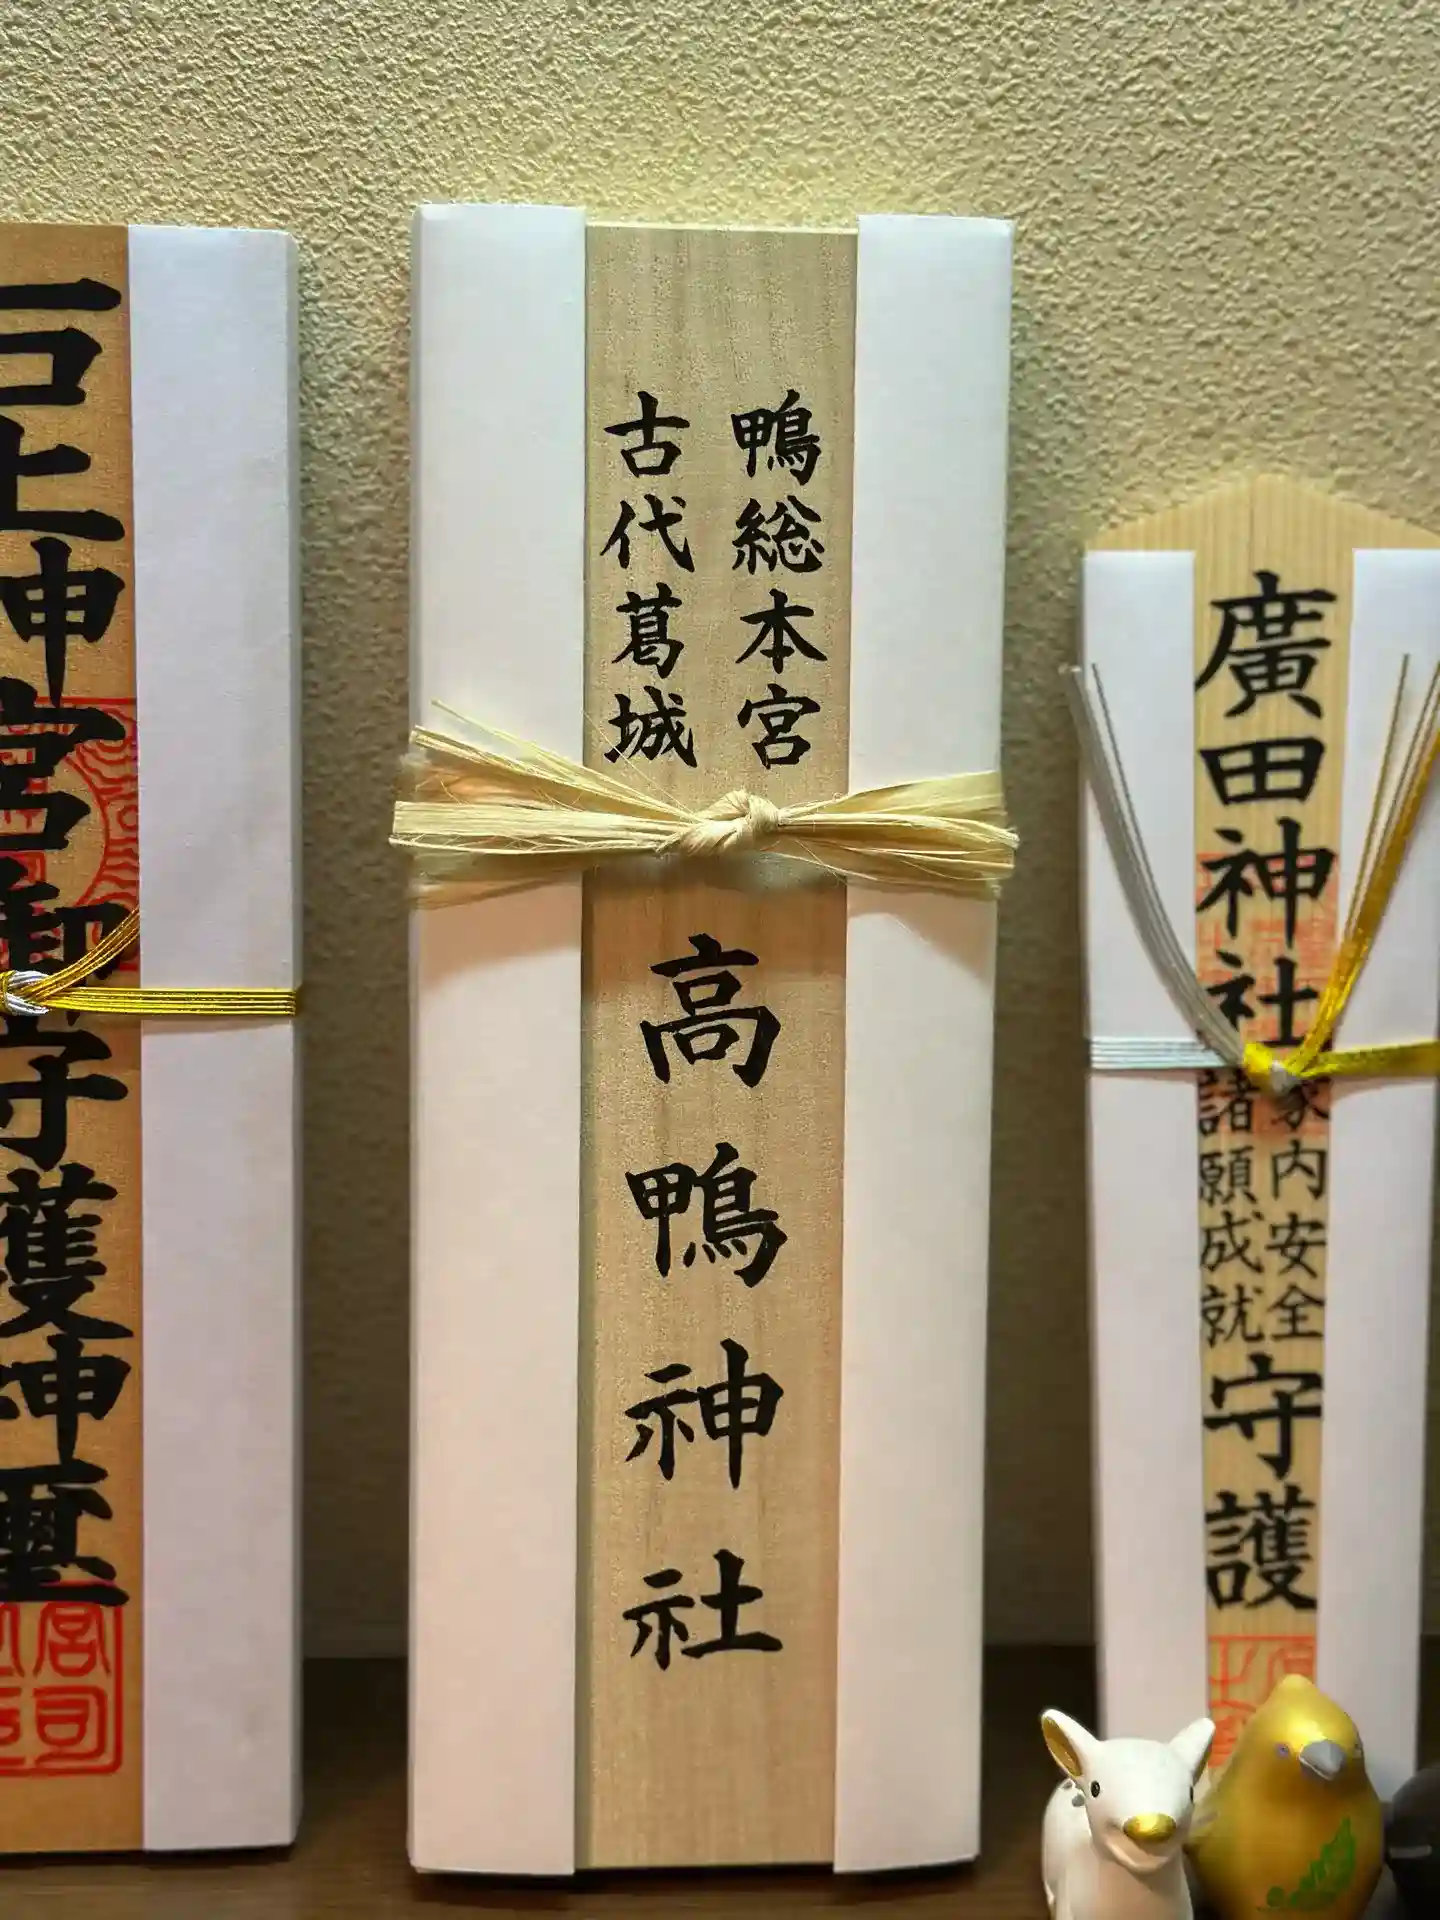 鴨総本宮
古代葛城
高鴨神社
廣田神社
家内安全
諸願成就
守護
石上神宮御守護神璽
宮司